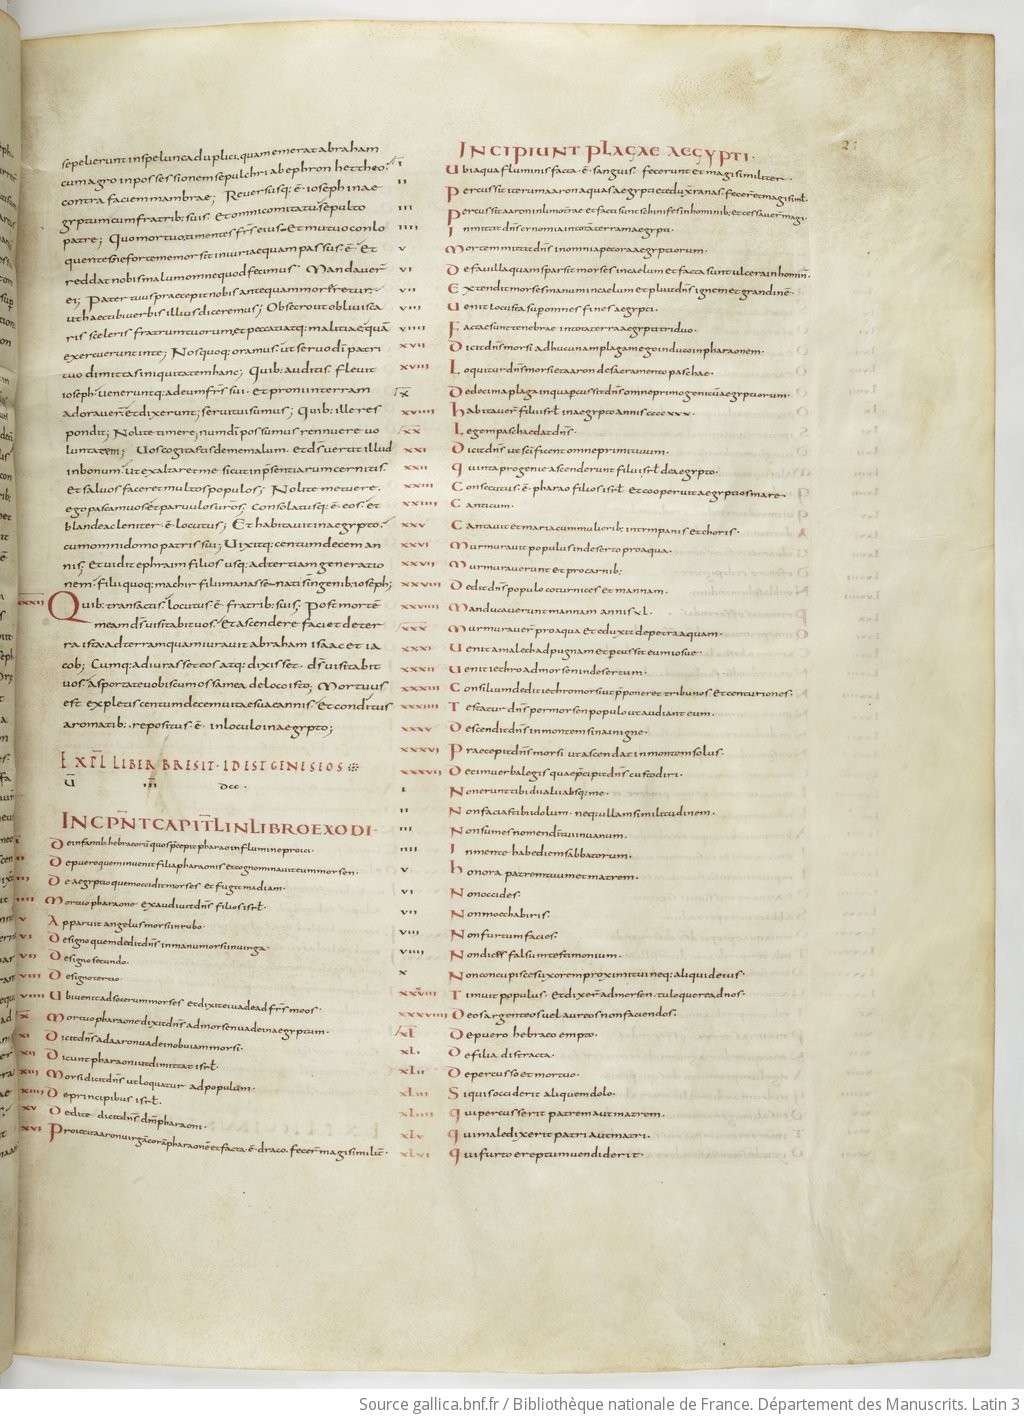 sepelierunt in spelunca duplici, quam emerat abraham
cum agro in possessionem sepulchri ab ephron hettheo
contra faciem mambrae; Reuersusq: ē ioseph in ae
gyptum cum fratrib: suis. et omni comitatu sepulto
patre; Quo mortuo. timentes frs eius. et mutuo conlo
quentes. ne forte memor sit iniuriae quam passus ē. et
reddat nobis malum omne quod fecimus. Mandauer̄
ei; Pater tuus praecepit nobis antequam moreretur,
ut haec tibi uerbis illius diceremus; Obsecro ut obliuisca
ris sceleris fratrum tuorum. et peccati atq: malitiae quā
exercuerunt in te; Nos quoq: oramus. ut seruo dī patri
tuo dimittas iniquitatem hanc; Quib: auditis. fleuit
ioseph. ueneruntq: ad eum frs sui. et proni in terram
adorauer̄ et dixerunt; serui tui sumus; Quib: ille res
pondit; Nolite timere, num dī possumus rennuere uo
luntatem; Uos cogitastis de me malum. et ds uertit illud
in bonum. ut exaltaret me sicut in p̄sentiarum cernitis.
et saluos faceret multos populos; Nolite metuere.
ego pascam uos et paruulos uros; Consolatusq: ē eos. et
blande ac leniter ē locutus; Et habitauit in aegypto.
cum omni domo patris sui; Uixitq: centum decem an
nis; et uidit ephraim filios usq: ad tertiam generatio
nem. filii quoq: machir filii manasse. nati s̄ in genib: ioseph;
xxii Quib: transactis. locutus ē fratrib: suis; Post mortē
meam ds uisitabit uos. et ascendere faciet de ter
ra ista. ad terram quam iurauit abraham isaac et ia
cob; Cumq: adiurasset eos atq: dixisset. ds uisitabit
uos. asportate uobiscum ossa mea de loco isto; Mortuus
est expletis centum decem uitae suae annis. et conditus
aromatib:. repositus ē in loculo in aegypto;
EXPL LIBER BRESIT. ID EST GENESEOS
U̅ III̅ DCC.
INCPNT CAPITL IN LIBRO EXODI.
i De infantib: hebraeorū quos p̄cepit pharao in flumine proici.
ii De puero quem inuenit filia pharaonis et cognominauit eum morsen.
iii De aegyptio quem occidit morses et fugit madiam.
iiii Mortuo pharaone exaudiuit dn̄s filios isrl.
v Apparuit angelus morsi in rubo.
vi De signo quem dedit dn̄s in manu morsi in uirga.
vii De signo secundo.
viii De signo tertio.
viiii Ubi uenit ad socerum morses et dixit ei uade ad frs meos.
x̄ Mortuo pharaone dixit dn̄s ad morsen uade in aegyptum.
xi Dicit dn̄s ad aaron uade in obuiam morsi.
xii Dicunt pharaoni ut dimittat isrl.
xiii Morsi dicit dn̄s ut loquatur ad populum.
xiiii De principibus isrl.
xv Dedit e dicit dn̄s dm̄ pharaoni.
xvi Proiecit aaron uirgā corā pharaonē et facta ē draco. fecer̄ magi similit̄.
INCIPIUNT PLAGAE AEGYPTI.
i Ubi aqua fluminis facta ē sanguis. fecerunt et magi similiter.
ii Percussit iterum aaron aquas aegypti et eduxit ranas. fecer̄ et magi simil.
iii Percussit aaron limum terrae et facti sunt scinifes in hominib: et cessauer̄ magi.
iiii Inmittit dn̄s cynomia in tota terram aegypti.
v Mortem mittit dn̄s in omnia pecora aegyptiorum.
vi De fauilla quam sparsit morses in caelum et facta sunt ulcera in homin.
vii Extendit morses manum in caelum et pluit dn̄s ignem et grandinē.
viii Uenit locusta sup omnes fines aegypti.
viiii Factae sunt tenebrae in tota terra aegypti triduo.
xvii Dicit dn̄s morsi adhuc unam plagam ego induco in pharaonem.
xviii Loquitur dn̄s morsi et aaron de sacramento paschae.
x̄ De decima plaga in qua pcussit dn̄s omne primogenitū aegyptiorum.
xviiii Habitauer̄ filii isrl in aegypto annis ccccxxx.
xx Legem paschae dat dn̄s.
xxi Dicit dn̄s ut scificent omne primitiuum.
xxii Quinta progenie ascenderunt filii isrl de aegypto.
xxiii Consecutus ē pharao filios isrl et cooperuit aegyptios mare.
xxiiii Canticum.
xxv Cantauit et maria cum mulierib: in tympanis et choris.
xxvi Murmurauit populus in deserto pro aqua.
xxvii Murmurauerunt et pro carnib:
xxviii Dedit dn̄s populo coturnices et mannam.
xxviiii Manducauerunt mannam annis xl.
xxx Murmurauer̄ pro aqua et eduxit de petra aquam.
xxxi Uenit amalech ad pugnam et pcussit eum iosue.
xxxii Uenit iethro ad morsen in desertum.
xxxiii Consilium dedit iethro morsi ut p̄poneret tribunos et centuriones.
xxxiiii Testatur dn̄s per morsen populo ut audiant eum.
xxxv Descendit dn̄s in montem sina in igne.
xxxvi Praecepit dn̄s morsi ut ascendat in montem solus.
xxxvii Decim uerba legis quae p̄cipit dn̄s custodiri.
i Non erunt tibi dii alii absq: me.
ii Non facias tibi idolum. neq: ullam similitudinem.
iii Non sumes nomen dī tui in uanum.
iiii In mente habe diem sabbatorum.
v Honora patrem tuum et matrem.
vi Non occides.
vii Non moechaberis.
viii Non furtum facies.
viiii Non dices falsum testimonium.
x Non concupisces uxorem proximi tui neq: aliqui de eius.
xxxviii Timuit populus. et dixer̄ ad morsen. tu loquere ad nos.
xxxviiii Deos argenteos uel aureos non faciendos.
xl̄ De puero hebraeo empto.
xli De filia distracta.
xlii De percusso et mortuo.
xliii Si quis occiderit aliquem dolo.
xliiii Qui percusserit patrem aut matrem.
xlv Qui maledixerit patri aut matri.
xlvi Qui furto ereptum uendiderit.
21
Source gallica.bnf.fr / Bibliothèque nationale de France. Département des Manuscrits. Latin 3